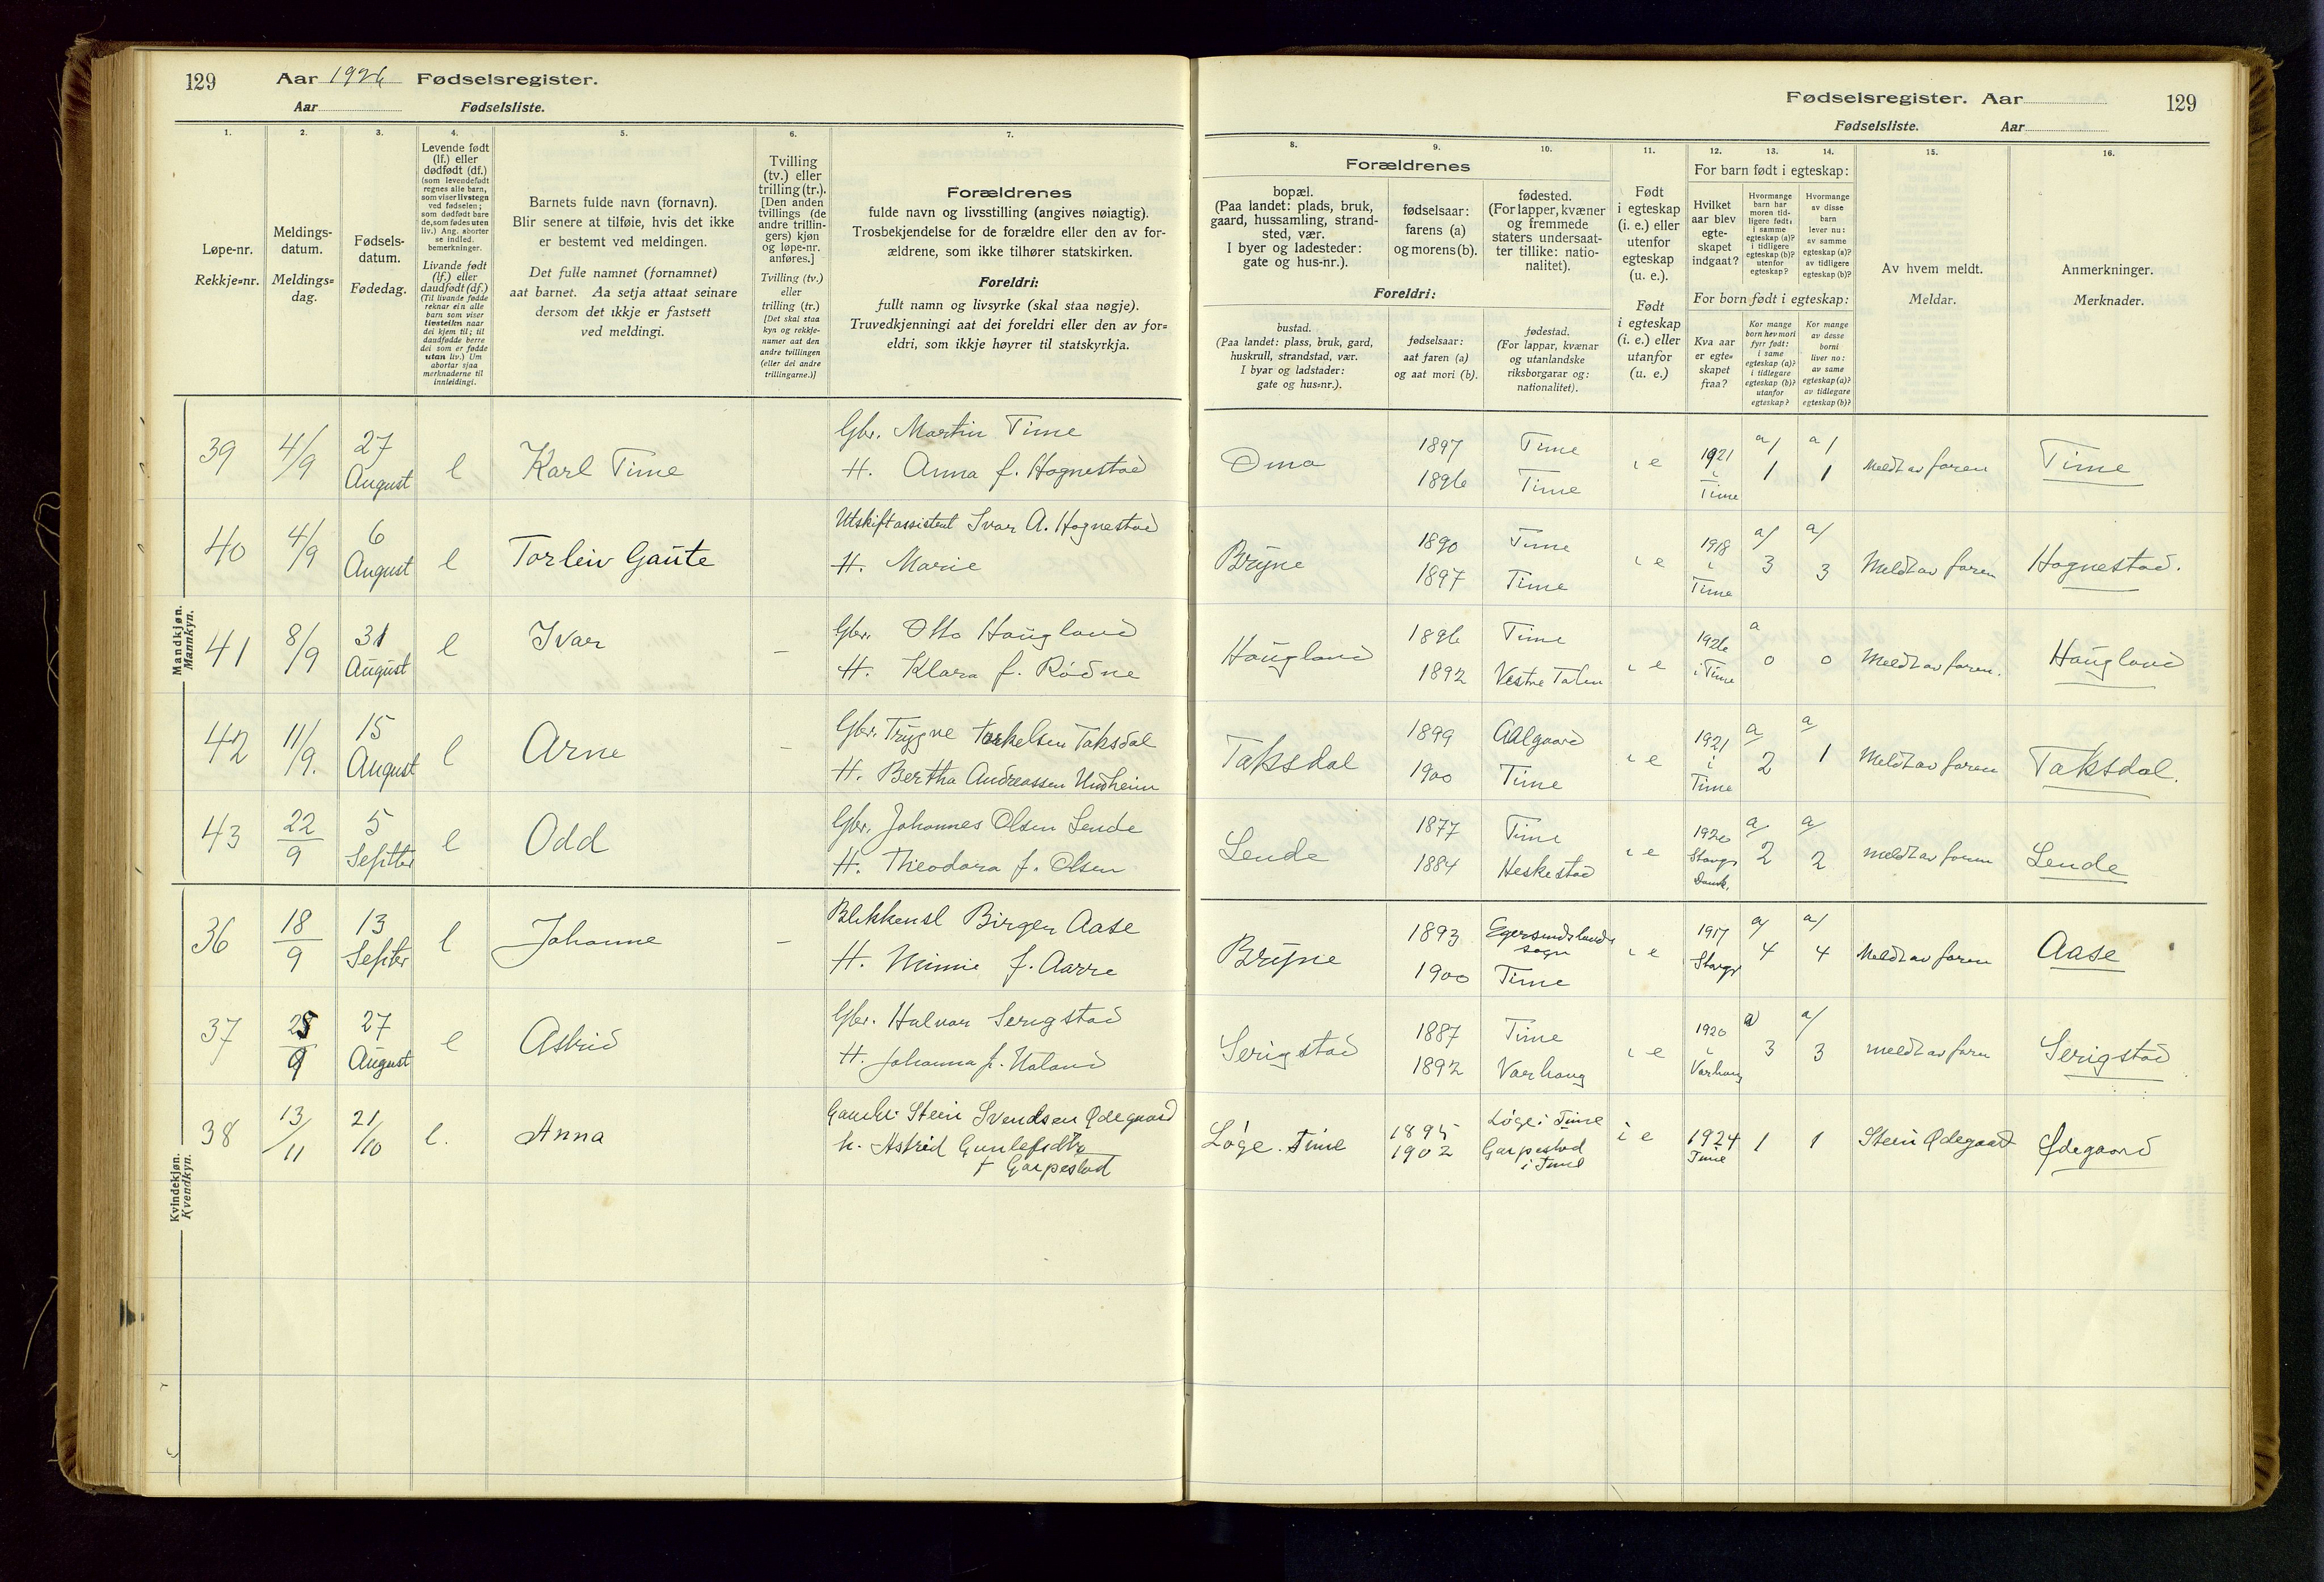 129 Aar 1926 Fødselsregister.
Aar Fødselsliste.
Fødselsregister. Aar 129
Fødselsliste. Aar
1. 2. 3. 4. 5. 6. 7.
8. 9. 10. 11. 12. 13. 14. 15. 16.
Løpe-nr.
Rekkje=nr.
Meldings-
datum.
Meldings=
dag.
Fødsels-
datum.
Fødedag.
Levende født
(lf.) eller
dødfødt (df.)
(som levendefødt
regnes alle barn,
som viser livstegn
ved fødselen;
som dødfødt bare
de, som fødes uten
liv.) Ang. aborter
se indled.
bemerkninger.
Livande født
(lf.) eller
daudfødt (df.)
(Til livande fødde
reknar ein alle
barn som viser
livsteikn naar
dei kjem til; til
daudfødde berre
dei som er fødde
utan liv.) Um
abortar sjaa
merknaderne til
innleidingi.
Barnets fulde navn (fornavn).
Blir senere at tilføie, hvis det ikke
er bestemt ved meldingen.
Det fulle namnet (fornamnet)
aat barnet. Aa setja attaat seinare
dersom det ikkje er fastsett
ved meldingi.
Tvilling
(tv.) eller
trilling (tr.).
[Den anden
tvillings (de
andre trillin-
gers) kjøn
og løpe-nr.
anføres.]
Tvilling (tv.)
eller
trilling (tr.)
[Det skal staa
kyn og rekkje-
numer aat den
andre tvillingen
(eller dei andre
trillingarne.)]
Forældrenes
fulde navn og livsstilling (angives nøiagtig).
Trosbekjendelse for de forældre eller den av for-
ældrene, som ikke tilhører statskirken.
Foreldri:
fullt namn og livsyrke (skal staa nøgje).
Truvedkjenningi aat dei foreldri eller den av for=
eldri, som ikkje høyrer til statskyrkja.
Forældrenes
bopæl.
(Paa landet: plads, bruk,
gaard, hussamling, strand-
sted, vær.
I byer og ladesteder:
gate og hus-nr.).
fødselsaar:
farens (a)
og morens (b).
fødested.
(For lapper, kvæner
og fremmede
staters undersaat-
ter tillike: natio-
nalitet).
Foreldri:
bustad.
(Paa landet: plass, bruk, gard,
huskrull, strandstad, vær.
I byar og ladstader:
gate og hus=nr.).
fødselsaar:
aat faren (a)
og aat mori (b).
fødestad.
(For lappar, kvænar
og utanlandske
riksborgarar og:
nationalitet).
Født
i egteskap
(i. e.) eller
utenfor
egteskap
(u. e.).
Født
i egteskap
(i. e.) eller
utanfor
(u. e.)
For barn født i egteskap:
Hvilket
aar blev
egte-
skapet
indgaat?
Hvormange
barn har
moren tid-
ligere født:
i samme
egteskap (a)?
i tidligere
egteskap (b)?
utenfor
egteskap?
Hvormange
av disse
barn
lever nu:
av samme
egteskap (a)?
av tidligere
egteskap (b)?
For born født i egteskap:
Kva aar
er egte=
skapet
fraa?
Kor mange
born hev mori
fyrr født:
i same
egteskap (a)?
i tidlegare
egteskap (b)?
utanfor
egteskap?
Kor mange
av desse
borni
liver no:
av same
egteskap (a)?
av tidlegare
egteskap (b)?
Av hvem meldt.
Meldar.
Anmerkninger.
Merknader.
Mandkjøn.
Mannkyn.
39 4/9 27 August l Karl Time
Gbr. Martin Time
H. Anna f. Hognestad
Oma 1897 1896 Time Time i e 1921 i Time a/ 1 a/ 1 Meldt av faren Time
40 4/9 6 August l Torleiv Gaute
Utskiftassistent Ivar A. Hognestad
H. Marie
Bryne 1890 1897 Time Time i e 1918 i Time a/ 3 a/ 3 Meldt av faren Hognestad.
41 8/9 31 August l Ivar –
Gbr. Otto Haugland
H. Klara f. Rödne
Haugland 1896 1892 Time Vestre i e 1926 i Time a 0 0 Meldt av faren. Haugland
42 11/9. 15 August l Arne –
Gbr. Trygve Torkelsen Taksdal
H. Bertha Andreassen Undheim
Taksdal 1899 1900 Aalgaard Time i e 1921 i Time a/ 2 a/ 1 Meldt av faren Taksdal.
43 22/9 5 Septbr l Odd
Gbr. Johannes Olsen Lende
H. Theodora f. Olsen
Lende 1877 1884 Time Heskestad i e 1920 Stavgr Domk. a/ 2 a/ 2 meldt av faren Lende
Kvindekjøn.
Kvendkyn.
36 18/9 13 Septbr l Johanne –
Blikkensl Birger Aase
H. Minnie f. Aarre
Bryne 1893 1900 Egersundslands sogn Time i e 1917 Stavgr a/ 4 a/ 4 Meldt av faren Aase
37 25/9 27 August l Astrid
Gbr. Halvor Serigstad
H. Johanna f. Haland
Serigstad 1887 1892 Time Varhaug i e 1920 i Varhaug a/ 3 a/ 3 meldt av faren Serigstad
38 13/11 21/10 l. Anna
Svendsen Ødegaard
h. Astrid Gunlefsdtr
f Garpestad
Løge. Time 1895 1902 Løge i Time Garpestad i Time i e 1924 Time 1 1 Stein Ødegaard Ødegaard